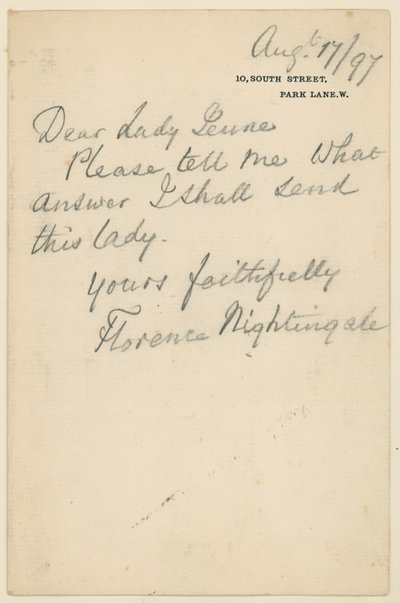 Augt. 17/97
10, SOUTH STREET,
PARK LANE. W.
Dear Lady Jeune
Please tell me What
answer I shall send
this lady.
yours faithfully
Florence Nightingale